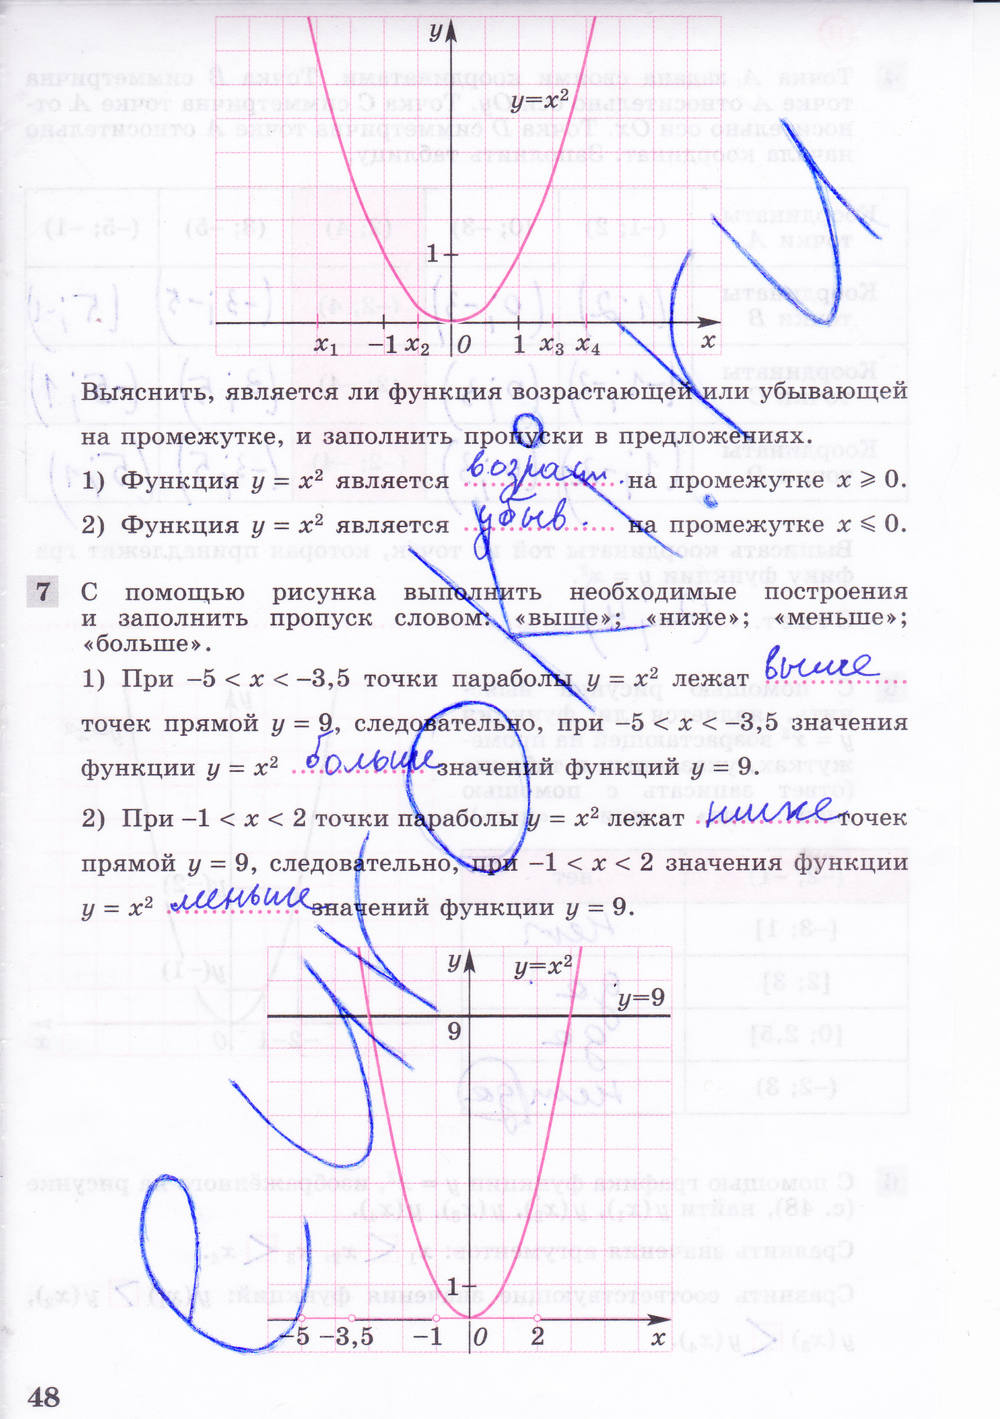 y
y=x²
1
x₁ −1 x₂ 0 1 x₃ x₄ x
Выяснить, является ли функция возрастающей или убывающей
на промежутке, и заполнить пропуски в предложениях.
1) Функция y = x² является возраст. на промежутке x ⩾ 0.
2) Функция y = x² является убыв. на промежутке x ⩽ 0.
7 С помощью рисунка выполнить необходимые построения
и заполнить пропуск словом: «выше»; «ниже»; «меньше»;
«больше».
1) При −5 < x < −3,5 точки параболы y = x² лежат выше
точек прямой y = 9, следовательно, при −5 < x < −3,5 значения
функции y = x² больше значений функций y = 9.
2) При −1 < x < 2 точки параболы y = x² лежат ниже точек
прямой y = 9, следовательно, при −1 < x < 2 значения функции
y = x² меньше значений функции y = 9.
y y=x²
y=9
9
1
−5 −3,5 −1 0 2 x
48